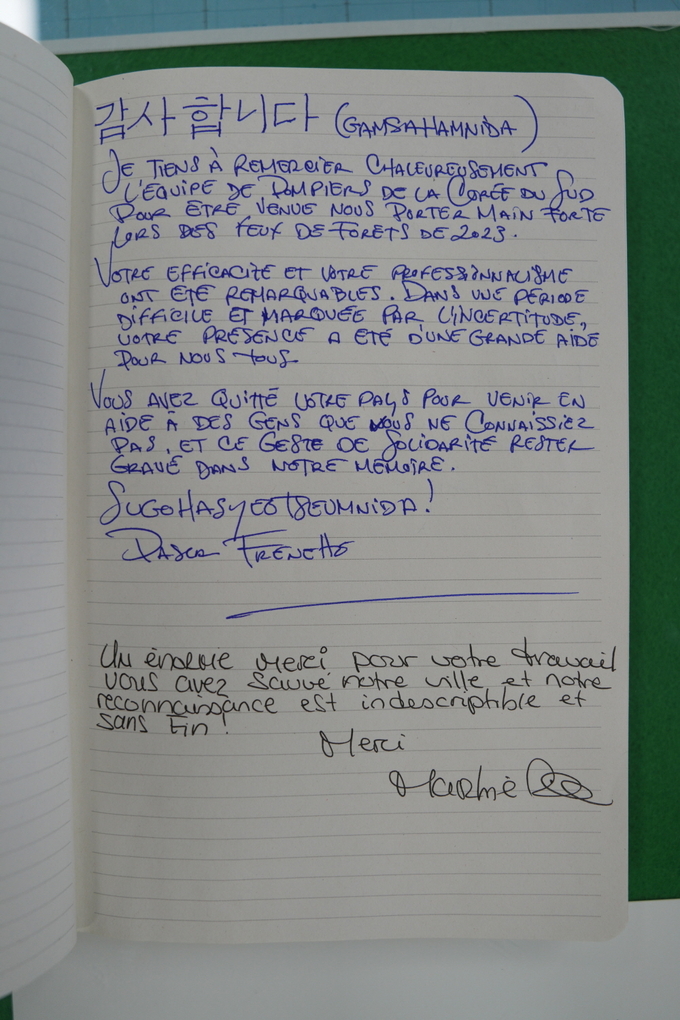 감사합니다 (GAMSAHAMNIDA)
JE TIENS À REMERCIER CHALEUREUSEMENT
L'ÉQUIPE DE POMPIERS DE LA CORÉE DU SUD
POUR ÊTRE VENUE NOUS PORTER MAIN FORTE
LORS DES FEUX DE FORÊTS DE 2023.
VOTRE EFFICACITÉ ET VOTRE PROFESSIONNALISME
ONT ÉTÉ REMARQUABLES. DANS UNE PÉRIODE
DIFFICILE ET MARQUÉE PAR L'INCERTITUDE,
VOTRE PRÉSENCE A ÉTÉ D'UNE GRANDE AIDE
POUR NOUS TOUS.
VOUS AVEZ QUITTÉ VOTRE PAYS POUR VENIR EN
AIDE À DES GENS QUE VOUS NE CONNAISSIEZ
PAS, ET CE GESTE DE SOLIDARITÉ RESTER
GRAVÉ DANS NOTRE MÉMOIRE.
SUGOHASYEOTSEUMNIDA!
FRENETTE
Un énorme merci pour votre travail
vous avez sauvé notre ville et notre
reconnaissance est indescriptible et
sans fin!
Merci